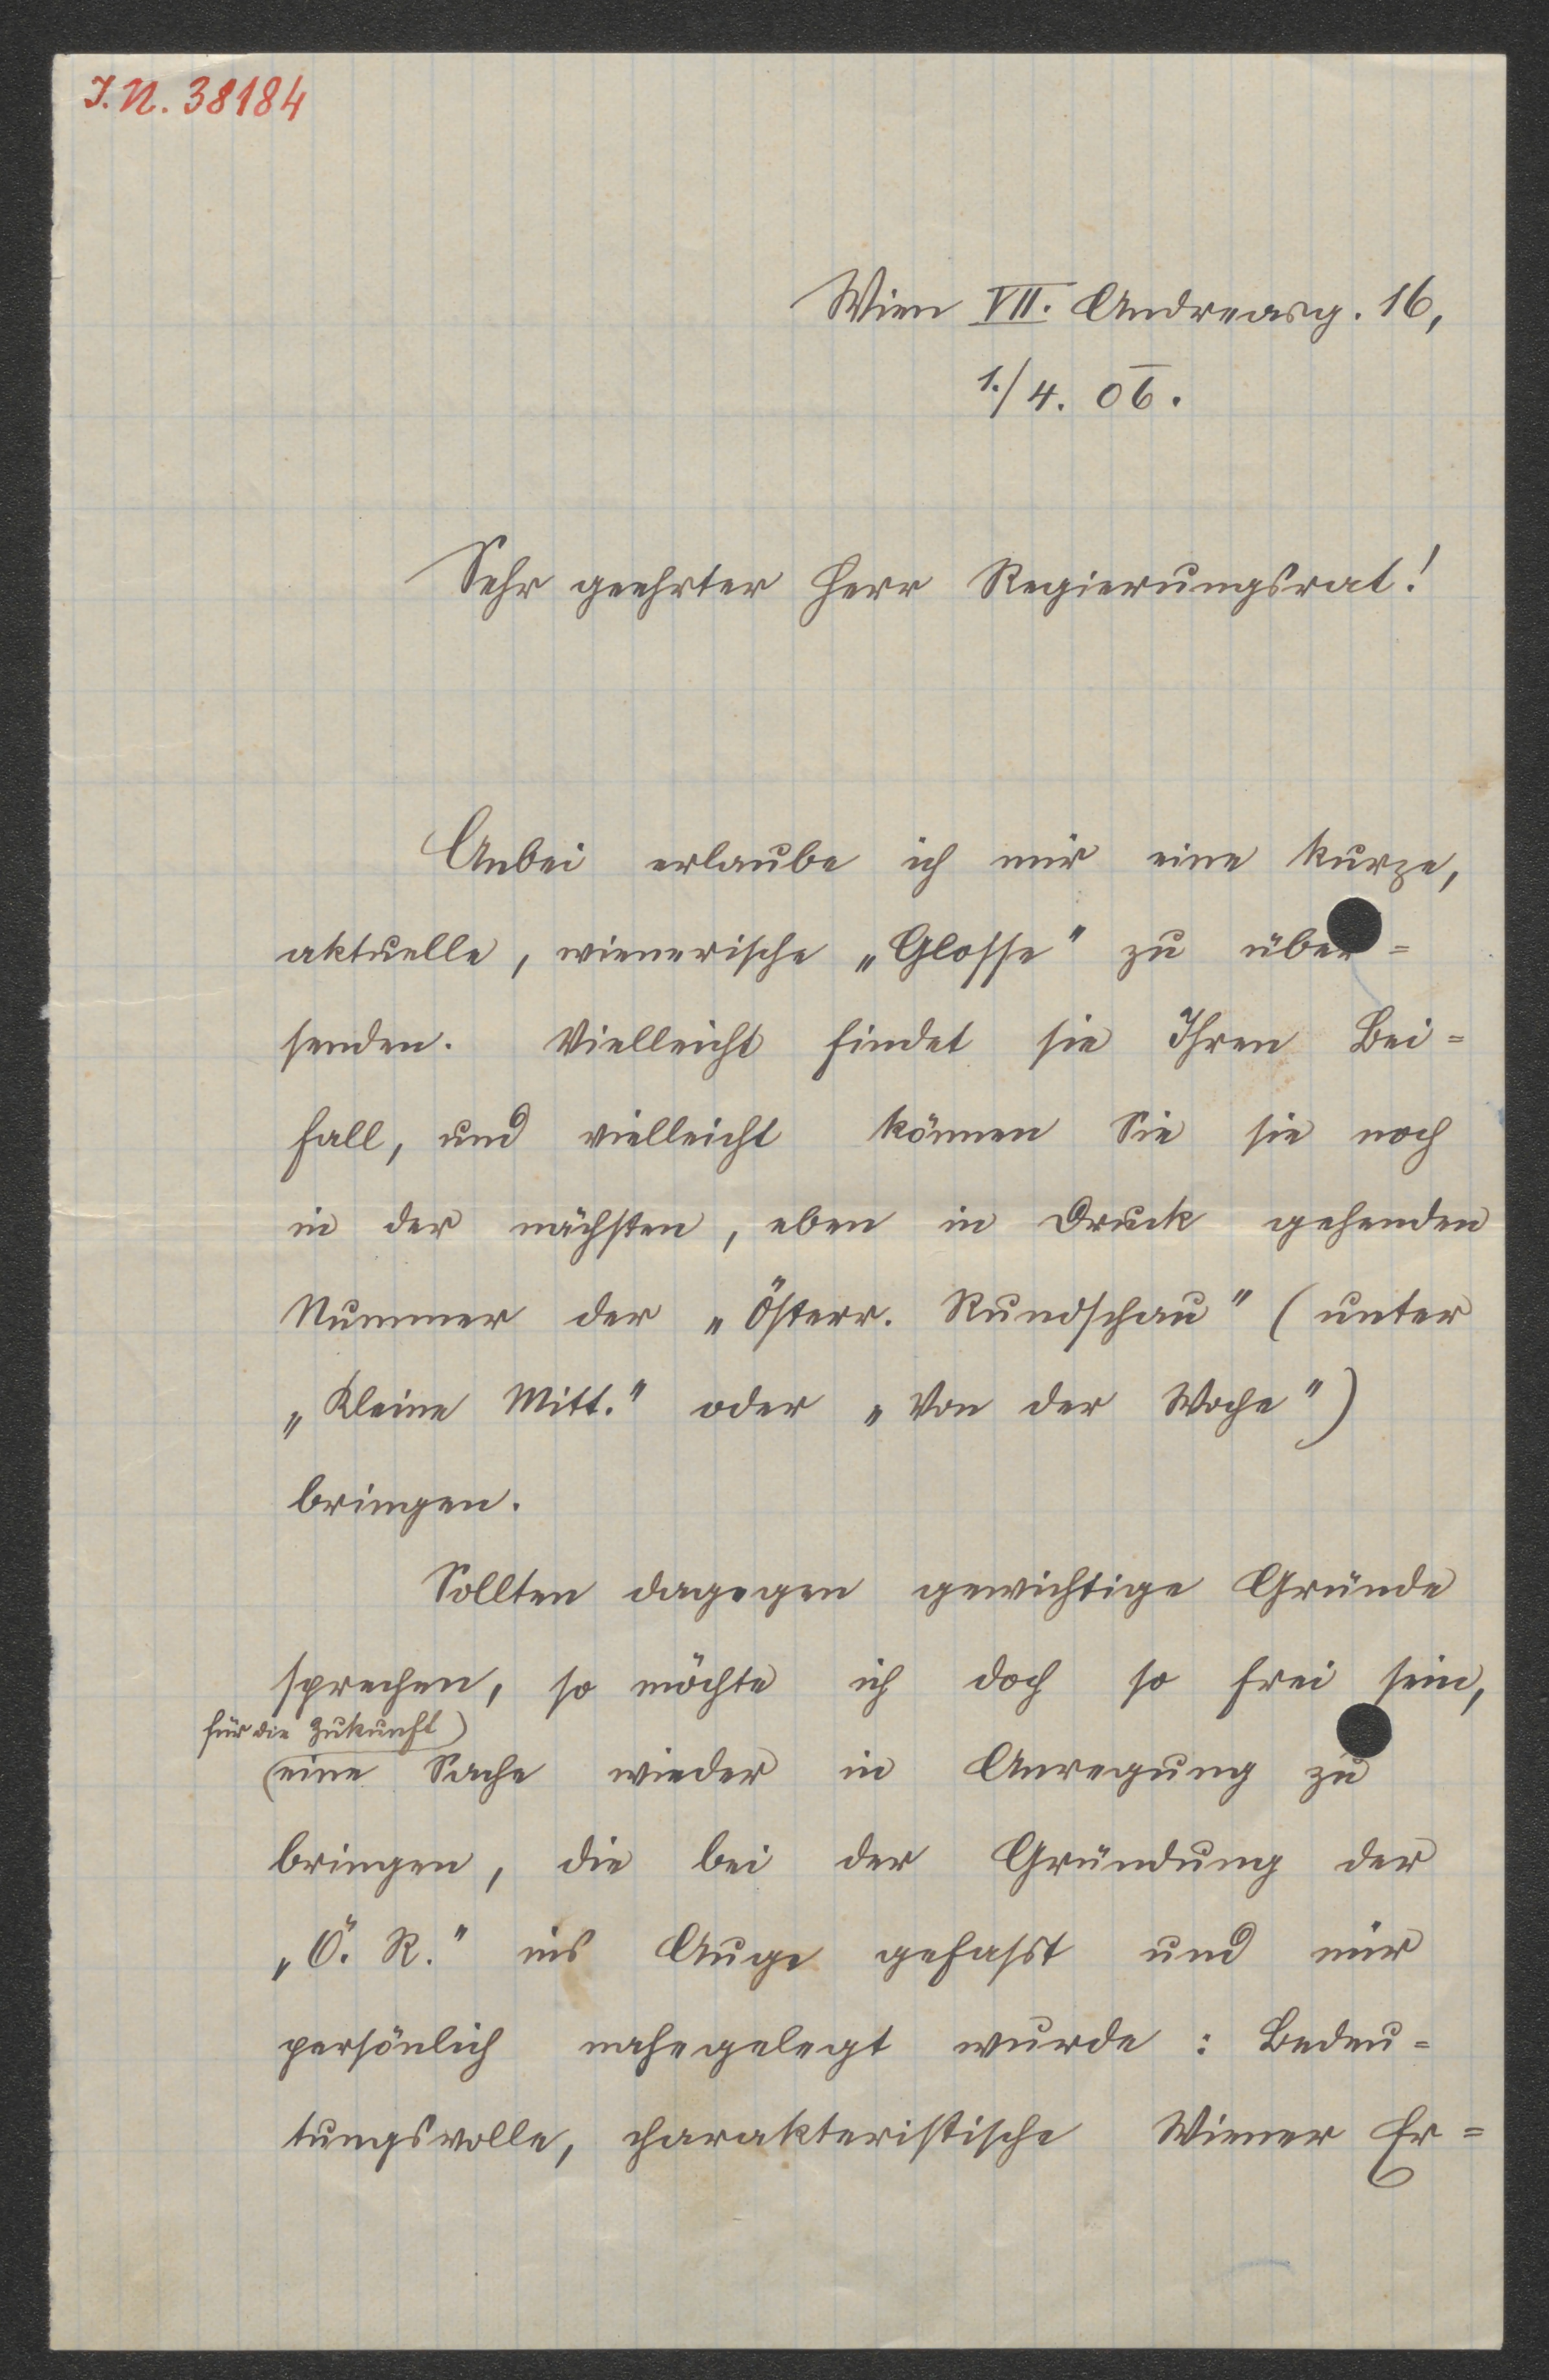 J.N. 38184
Wien VII. Andreasg. 16,
1./4. 06.
Sehr geehrter Herr Regierungsrat!
Anbei erlaube ich mir eine kurze,
aktuelle, wienerische „Glosse" zu über=
senden. Vielleicht findet sie Ihren Bei=
fall, und vielleicht können Sie sie noch
in der nächsten, eben in Druck gehenden
Nummer der „Österr. Rundschau" (unter
„Kleine Mitt." oder „Von der Woche")
bringen.
Sollten dagegen gewichtige Gründe
sprechen, so möchte ich doch so frei sein,
für die Zukunft
eine Sache wieder in Anregung zu
bringen, die bei der Gründung der
„Ö. R." ins Auge gefasst und mir
persönlich nahegelegt wurde: Bedeu=
tungsvolle, charakteristische Wiener Er=